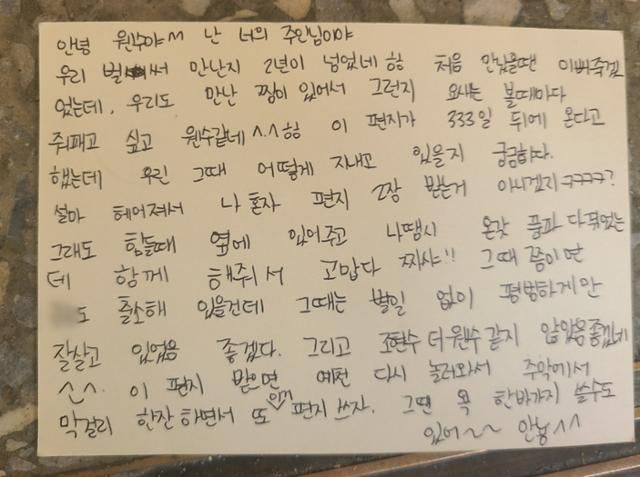 안녕 원수야^^ 난 너의 주인님이야
우리 벌써 만난지 2년이 넘었네ㅎㅎ 처음 만났을땐 이뻐죽겠
었는데, 우리도 만난 짬이 있어서 그런지 요새는 볼때마다
줘패고 싶고 원수같네^.^ㅎㅎ 이 편지가 333일 뒤에 온다고
했는데 우린 그때 어떻게 지내고 있을지 궁금하다.
설마 헤어져서 나 혼자 편지 2장 받는거 아니겠지ㅋㅋㅋㅋ?
그래도 힘들때 옆에 있어주고 나땜시 온갖 풍파 다 겪었는
데 함께 해줘서 고맙다 짜샤!! 그때 쯤이면
도 출소해 있을건데 그때는 별일 없이 평범하게만
잘살고 있었음 좋겠다. 그리고 조현수 더 원수 같지 않았음좋겠네
^.^. 이 편지 받으면 예전 다시 놀러와서 주막에서
막걸리 한잔 하면서 또 편지 쓰자. 그땐 욕 한바가지 쓸수도
있어~~ 안뇽^^